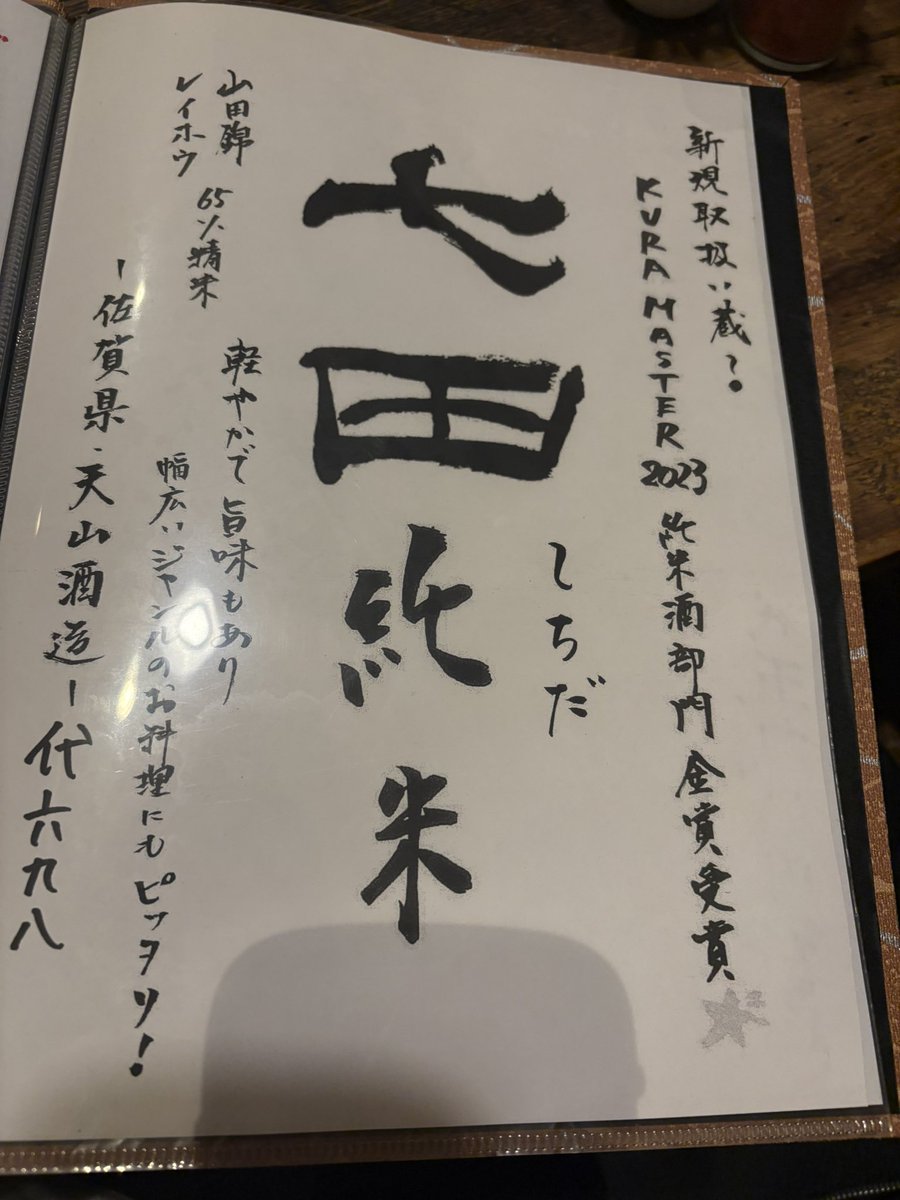 新規取扱い蔵〜。
KURA MASTER 2023 純米酒部門 金賞受賞
しちだ
七田純米
山田錦
レイホウ
65%精米
軽やかで旨味もあり
幅広いジャンルのお料理にもピッタリ！
ー佐賀県・天山酒造ー
代六九八